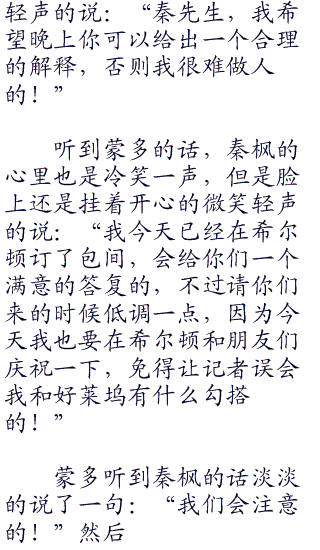 轻声的说：“秦先生，我希
望晚上你可以给出一个合理
的解释，否则我很难做人
的！”
听到蒙多的话，秦枫的
心里也是冷笑一声，但是脸
上还是挂着开心的微笑轻声
的说：“我今天已经在希尔
顿订了包间，会给你们一个
满意的答复的，不过请你们
来的时候低调一点，因为今
天我也要在希尔顿和朋友们
庆祝一下，免得让记者误会
我和好莱坞有什么勾搭
的！”
蒙多听到秦枫的话淡淡
的说了一句：“我们会注意
的！”然后